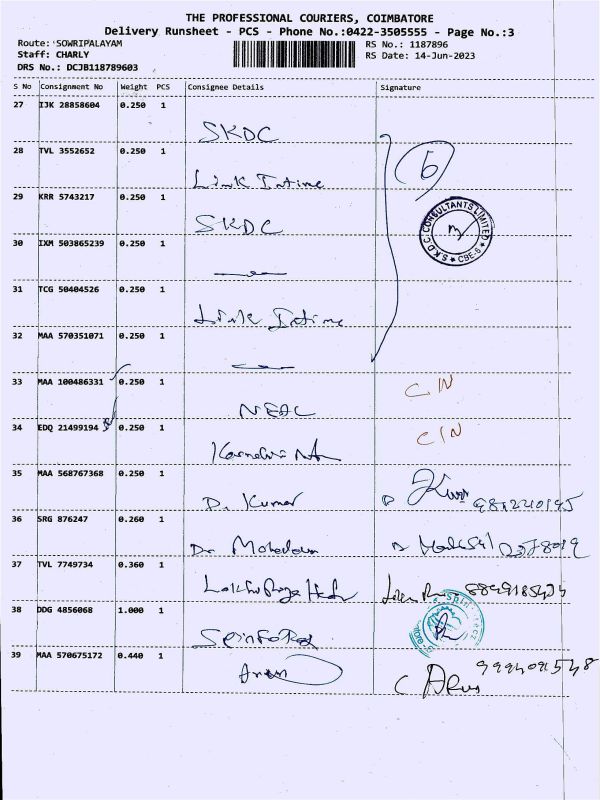 THE PROFESSIONAL COURIERS, COIMBATORE
Delivery Runsheet - PCS - Phone No.:0422-3505555 - Page No.:3
Route: SOWRIPALAYAM
RS No.: 1187896
Staff: CHARLY
RS Date: 14-Jun-2023
DRS No.: DCJB118789603
S No Consignment No Weight PCS Consignee Details Signature
27 IJK 28858604 0.250 1
SKDC
28 TVL 3552652 0.250 1
6
Link Intime
29 KRR 5743217 0.250 1
SKDC
S.K.D.C CONSULTANTS LIMITED
CBE-6
30 IXM 503865239 0.250 1
31 TCG 50404526 0.250 1
Link Intime
32 MAA 570351071 0.250 1
33 MAA 100486331 0.250 1
C/N
34 EDQ 21499194 0.250 1
C/N
35 MAA 568767368 0.250 1
D. Kumar
36 SRG 876247 0.260 1
Dr
37 TVL 7749734 0.360 1
38 DDG 4856068 1.000 1
39 MAA 570675172 0.440 1
Arun